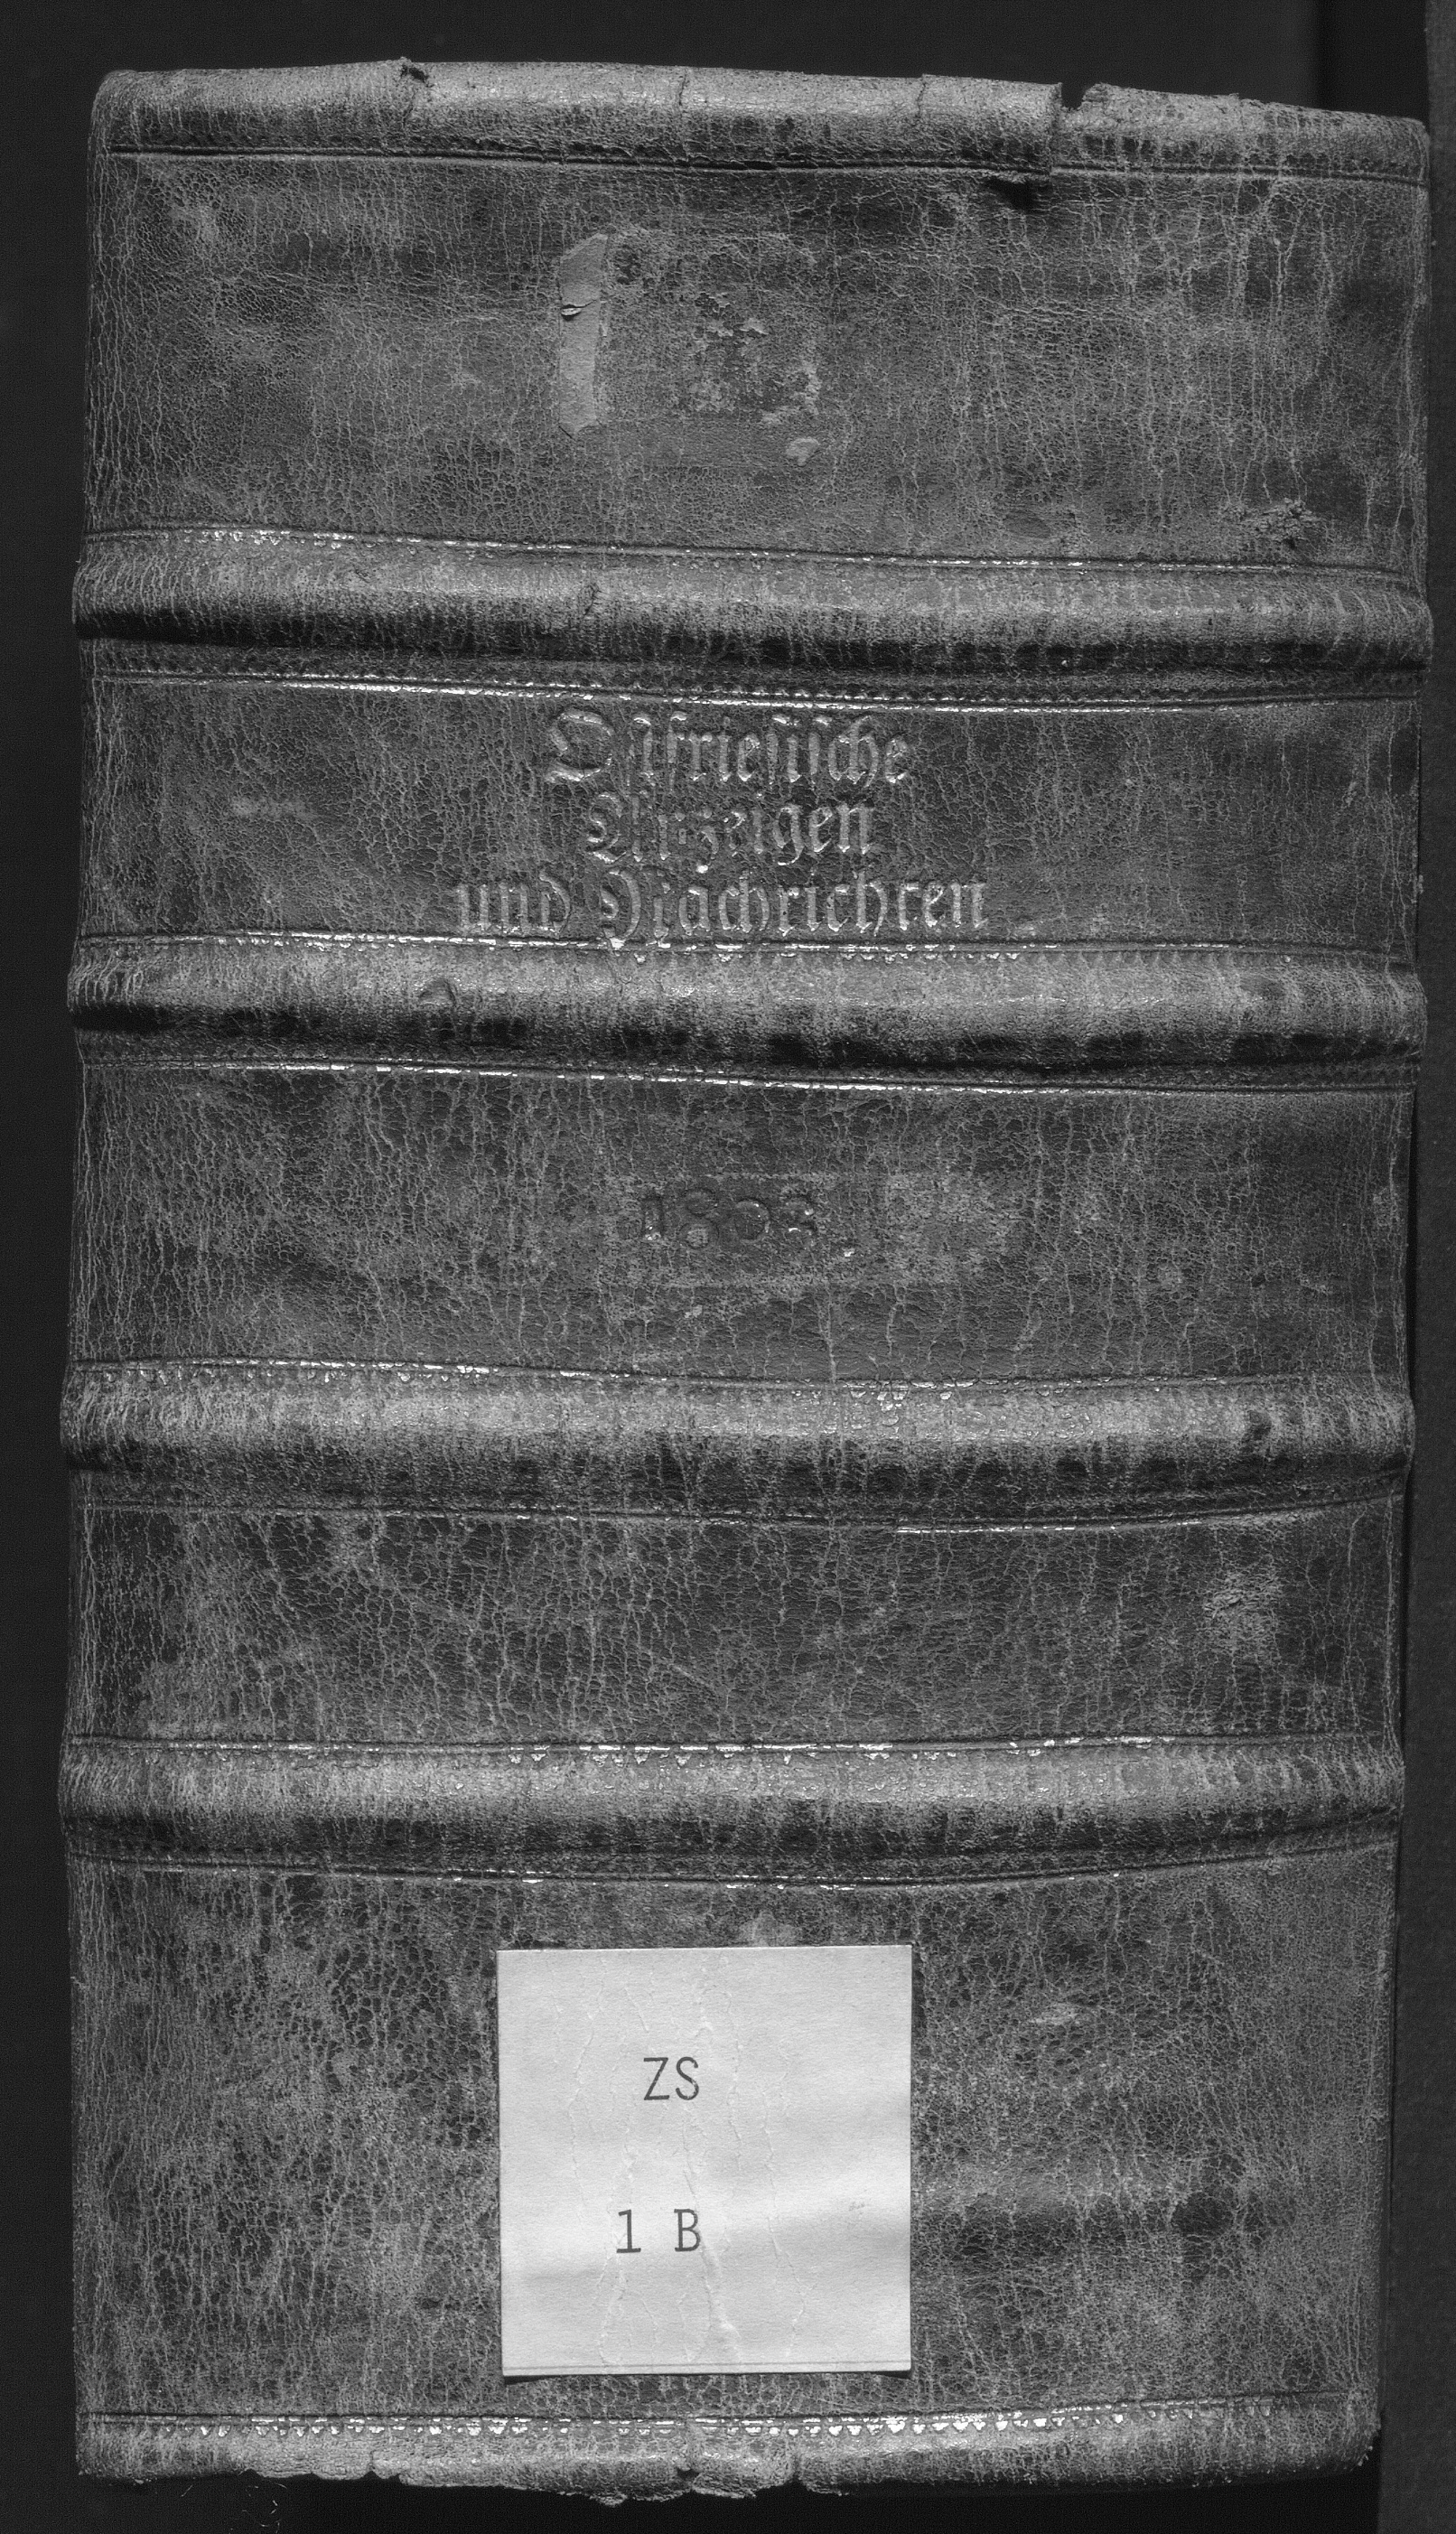 Ostfriesische
Anzeigen
und Nachrichten
ZS
1 B